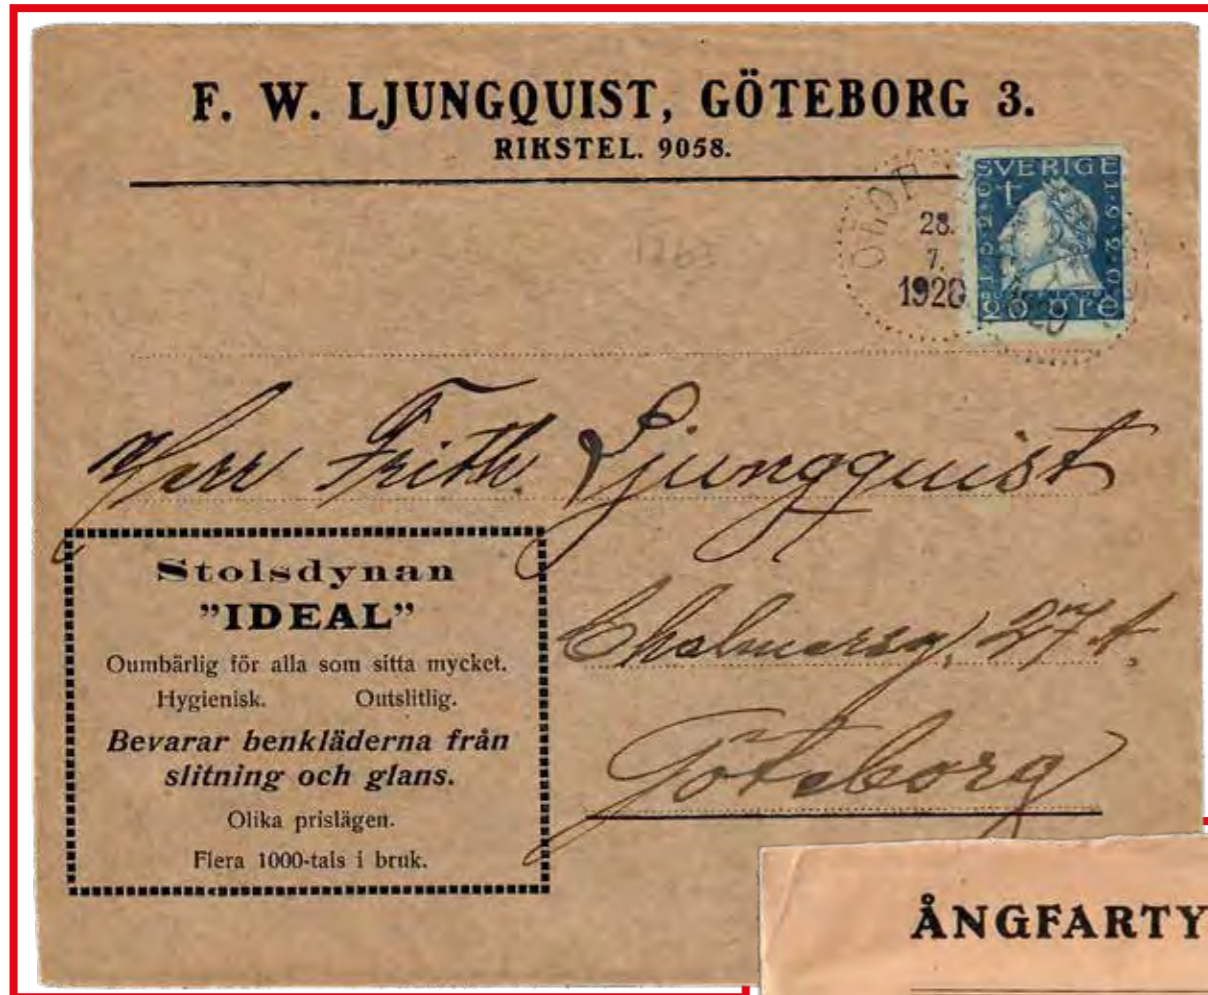 F. W. LJUNGQUIST, GÖTEBORG 3.
RIKSTEL. 9058.
SVERIGE
28.
7.
1920
20 öre
1263
Herr Frith. Ljungquist
Chalmersg. 27 A.
Göteborg
Stolsdynan
”IDEAL”
Oumbärlig för alla som sitta mycket.
Hygienisk. Outslitlig.
Bevarar benkläderna från
slitning och glans.
Olika prislägen.
Flera 1000-tals i bruk.
ÅNGFARTY